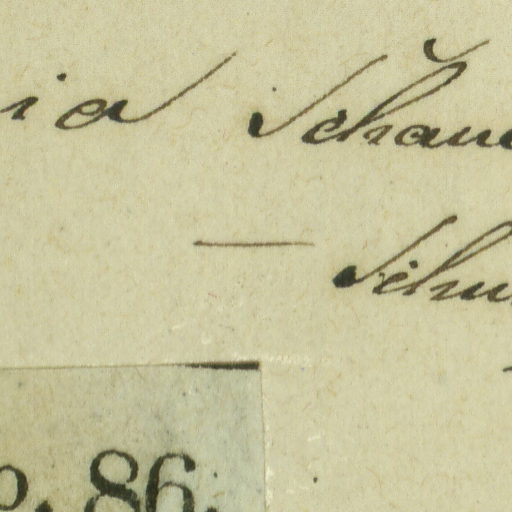 ia Schau
— Schu
o. 86.